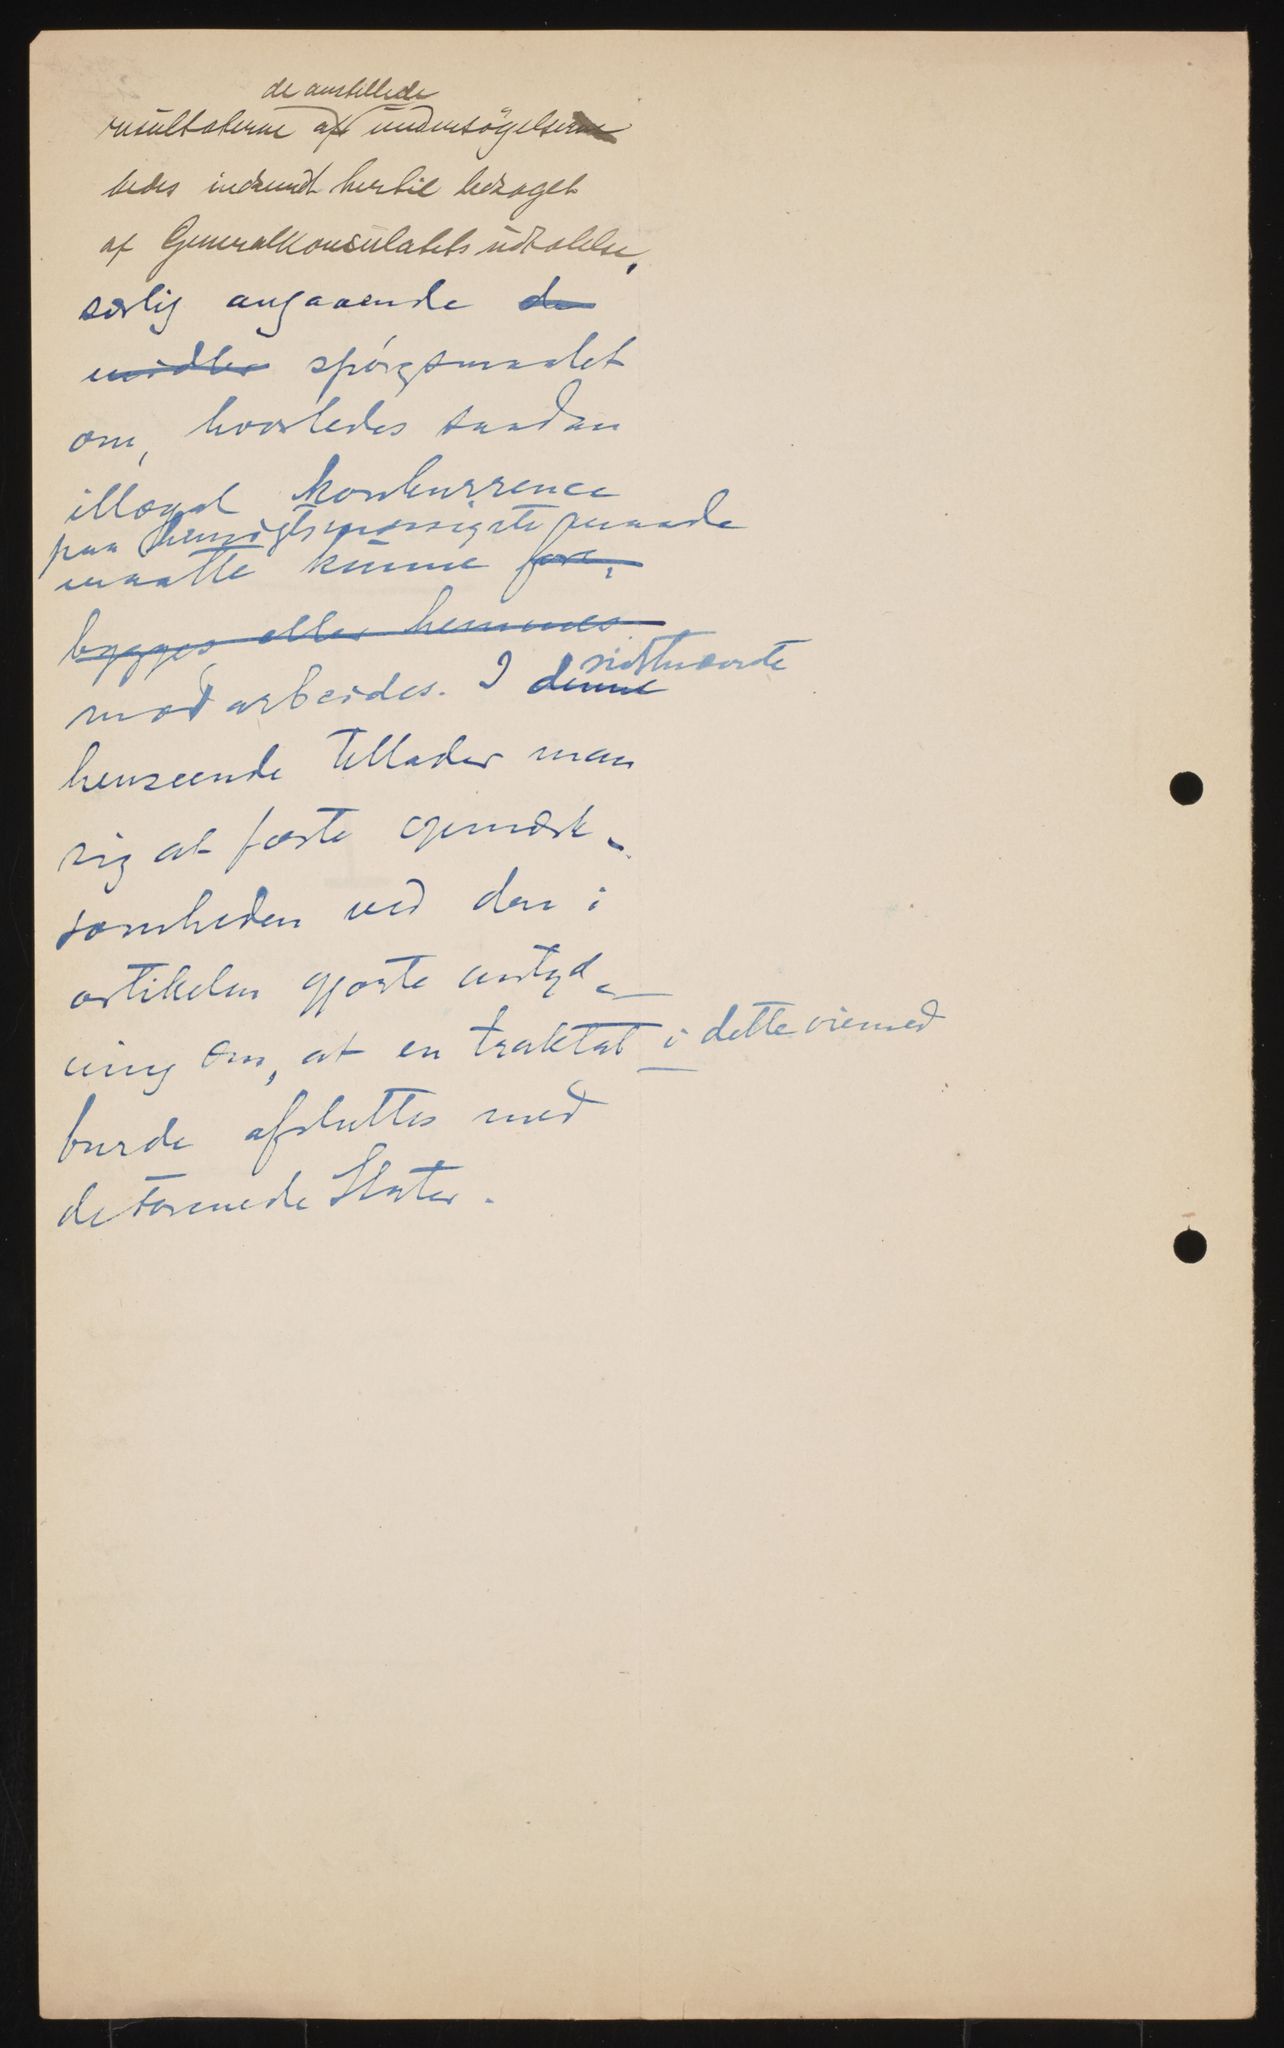 de anstillede
resultaterne af undersøgelserne
bedes indsendt hertil ledsaget
af Generalkonsulatets udtalelse,
særlig angaaende de
midler spørgsmaalet
om, hvorledes saadan
illegal konkurrence
paa hensigtsmæssigste maade
maatte kunne fore-
bygges eller hemmes
modarbeides. I denne sidstnævnte
henseende tillader man
sig at fæste opmærk-
somheden ved den i
artikelen gjorte antyd-
ning om, at en traktat i dette øiemed
burde afsluttes med
de Forenede Stater.